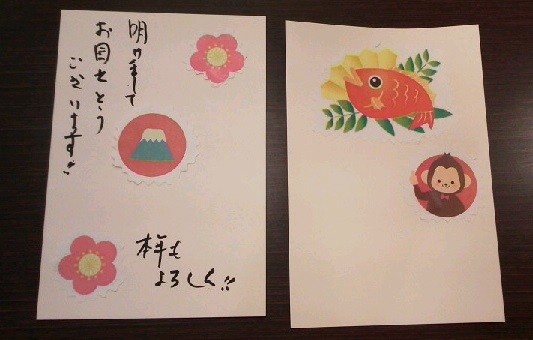 明けまして
お目でとう
ございます!!
本年も
よろしく!!